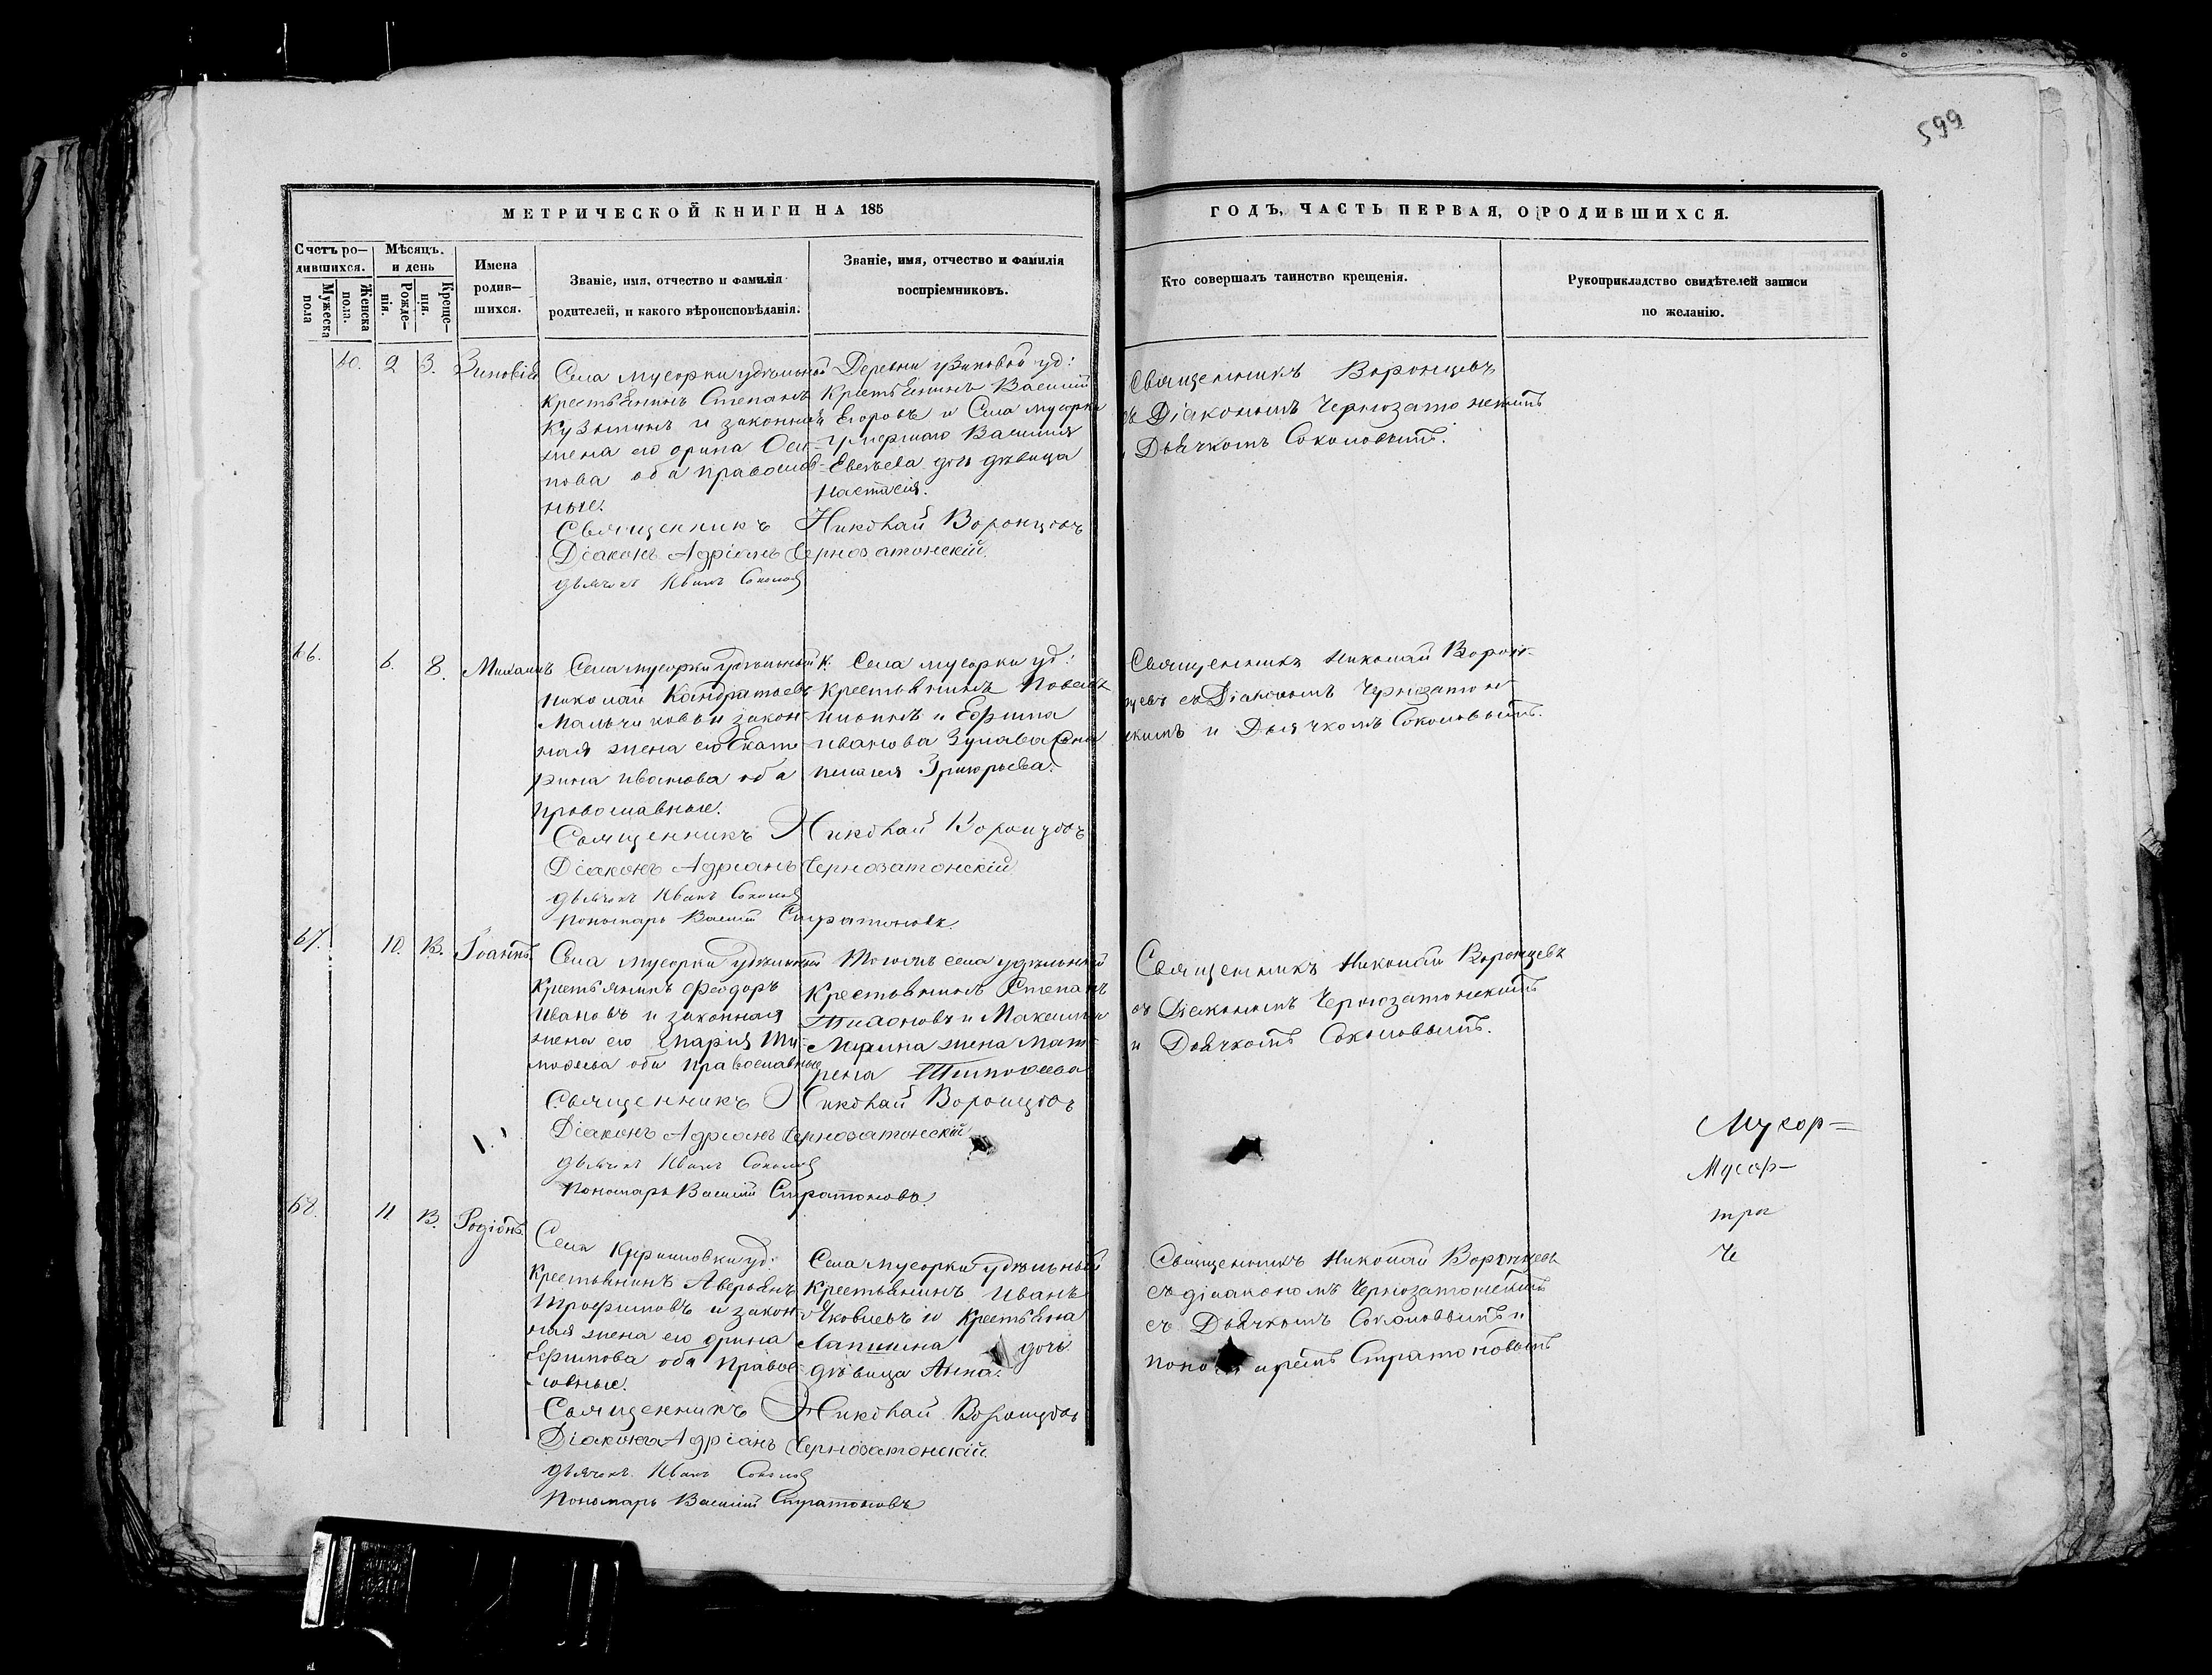 599
МЕТРИЧЕСКОЙ КНИГИ НА 185
ГОДЪ, ЧАСТЬ ПЕРВАЯ, О РОДИВШИХСЯ.
Счетъ ро-
дившихся.
Мужеска пола
Женска пола.
Мѣсяцъ.
и день
Рожде-
нія.
Креще-
нія.
Имена
родив-
шихся.
Званіе, имя, отчество и фамилія
родителей, и какого вѣроисповѣданія.
Званіе, имя, отчество и фамилія
воспріемниковъ.
Кто совершалъ таинство крещенія.
Рукоприкладство свидѣтелей записи
по желанію.
2 3. Зиновія
Села Мусорки удѣльной
Крестьянинъ Степанъ
Кузьминъ и законная
жена его орина Оси-
пова оба православ-
ные.
Деревни уд:
Крестьянинъ Василій
Егоровъ и Села Мусорки
умершаго Василія
дочь дѣвица
Настасія.
Священникъ Воронцевъ
съ Діакономъ Чернозатонскимъ
и Дьячкомъ Соколовымъ.
Священникъ Николай Воронцовъ
Діаконъ Адріанъ Чернозатонскій
дьячекъ Иванъ Соколов
66. 6. 8. Михаилъ
Села Мусорки удѣльный К.
Николай Кондратьевъ
Мальчиковъ и закон-
ная жена его Екате-
рина Иванова оба
православные.
Села Мусорки уд:
Крестьянинъ
и Ефима
Иванова
Григорьева.
Священникъ Николай Ворон-
цевъ съ Діакономъ Чернозатон-
скимъ и Дьячкомъ Соколовымъ.
Священникъ Николай Воронцовъ
Діаконъ Адріанъ Чернозатонскій
дьячекъ Иванъ Соколов
пономарь Василій Стратоновъ.
67. 10. Іоаннъ.
Села Мусорки удѣльный
Крестьянинъ Феодоръ
Ивановъ и законная
жена его Марія Ти-
мофеева оба православные
Тогожъ села удѣльный
Крестьянинъ Степанъ
и Максима
жена Мат-
рена
Священникъ Николай Воронцевъ
съ Діакономъ Чернозатонскимъ
и Дьячкомъ Соколовымъ.
Священникъ Николай Воронцовъ
Діаконъ Адріанъ Чернозатонскій
дьячекъ Иванъ Соколов
Пономарь Василій Стратоновъ.
Мусор=
Мусор-
тра
Че
68. 11. Родіонъ.
Села Кирилловки уд:
Крестьянинъ Аверьянъ
Трофимовъ и закон-
ная жена его орина
Ефимова оба правос-
лавные.
Села Мусорки удѣльный
Крестьянинъ Иванъ
Яковлевъ и
Лапшина дочь
дѣвица Анна.
Священникъ Николай Воронцевъ
съ діакономъ Чернозатонскимъ
съ Дьячкомъ Соколовымъ и
Стратоновымъ
Священникъ Николай Воронцовъ
Діаконъ Адріанъ Чернозатонскій
дьячекъ Иванъ Соколов
Пономарь Василій Стратоновъ